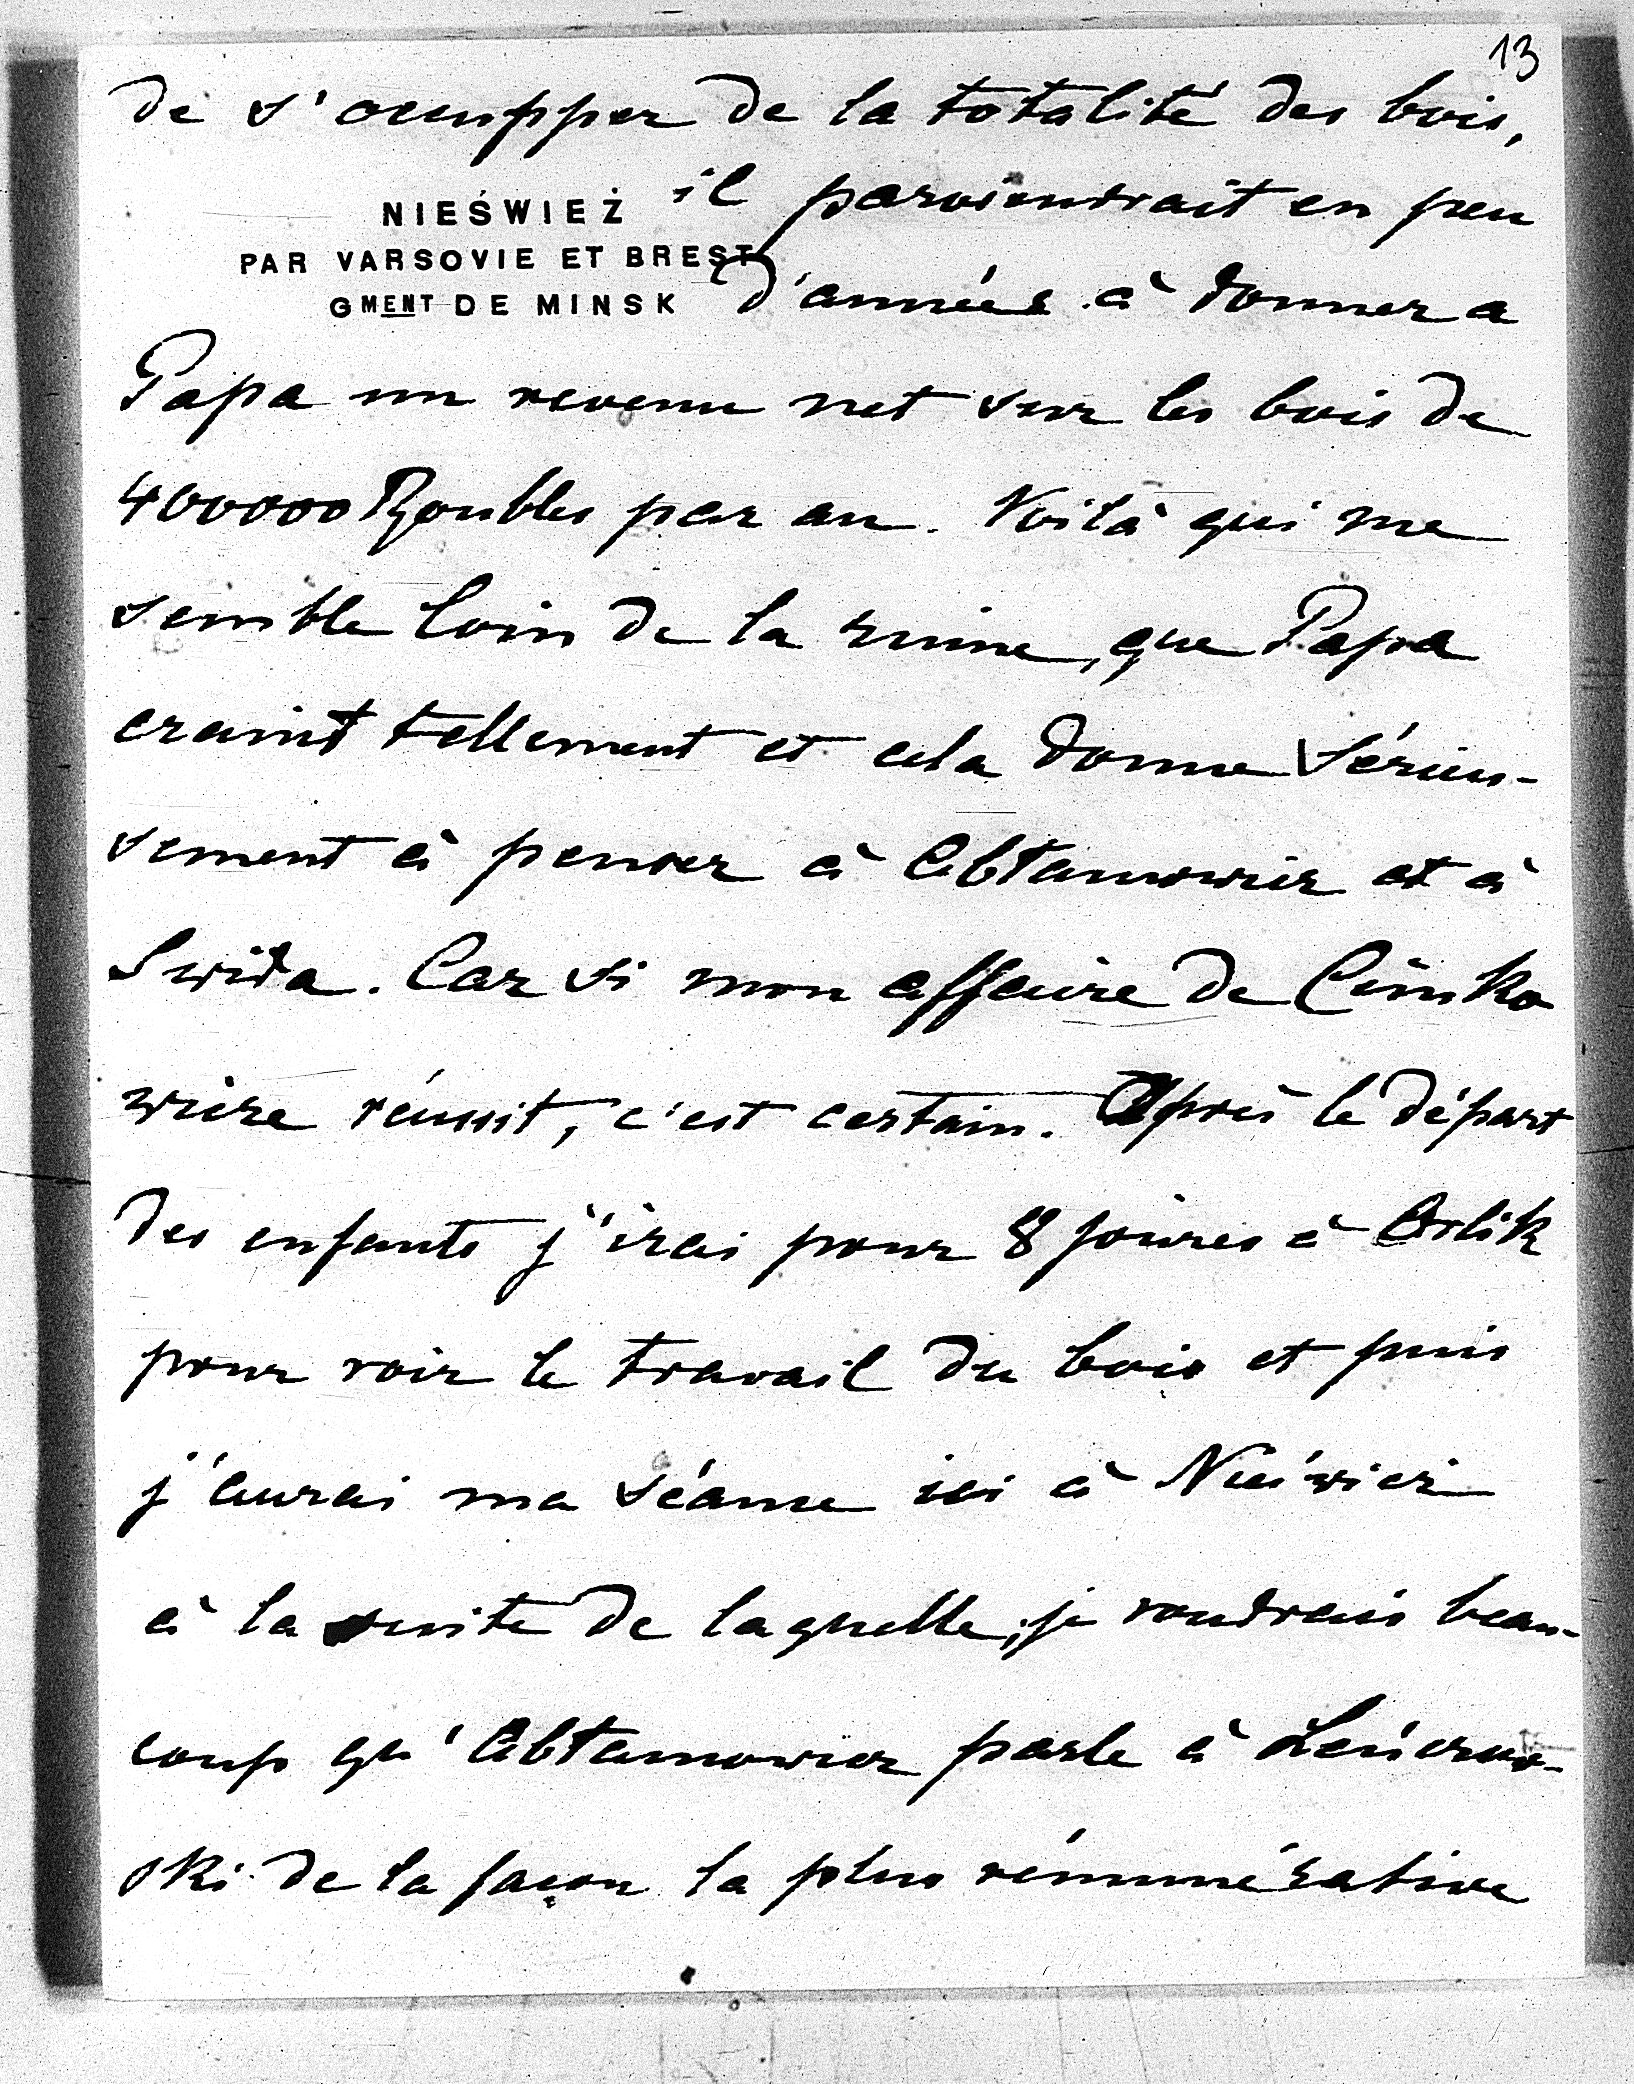 13
de s'ocuupper de la totalité des bois,
NIEŚWIEŻ
il parviendrait en peu
PAR VARSOVIE ET BREST
GMENT DE MINSK
d'années à donner a
Papa un revenu net sur les bois de
400000 Roubles par an. Voilà qui me
semble loin de la ruine, que Papa
craint tellement et cela donne sérieu-
sement à penser à Abtamowicz et à
Swida. Car si mon affaire de Cimko
wicze réussit, c'est certain. Après le départ
des enfants j'irai pour 8 joures à Orlik
pour voir le travail du bois et puis
j'aurai ma séance ici à Nieśwież
à la suite de laquelle, je voudrais beau-
coup qu'Abtamowicz parle à
ski de la façon la plus rémunérative